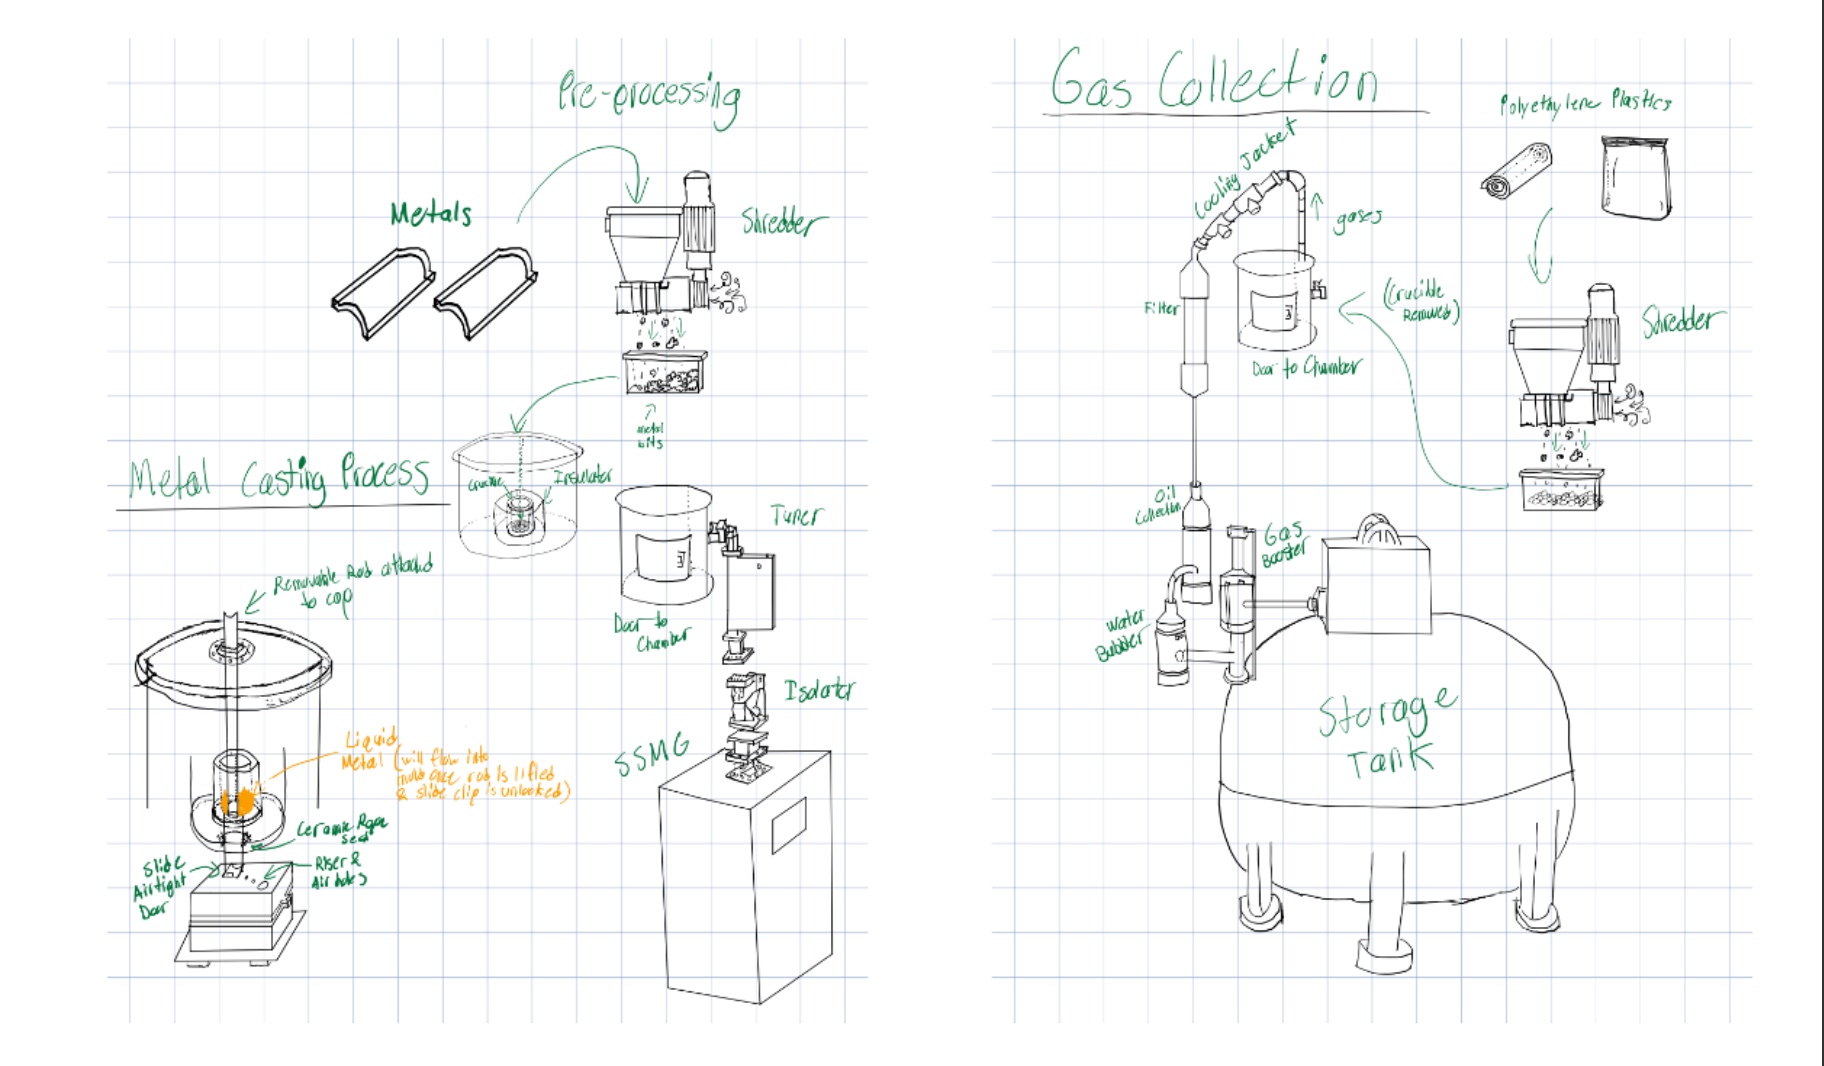 Pre-processing
Metals
Shredder
metal
bits
Metal Casting Process
Crucible
Insulator
Tuner
Door to
Chamber
Removable Rod attached
to cap
Isolator
SSMG
Liquid
Metal (will flow into
mold once rod is lifted
& slide clip is unlocked)
Ceramic Rope
seal
Slide
Airtight
Door
Riser &
Air holes
Gas Collection
Polyethylene Plastics
Cooling Jacket
gases
Filter
(Crucible
Removed)
Shredder
Door to Chamber
Oil
Collection
Gas
Booster
Water
Bubbler
Storage
Tank